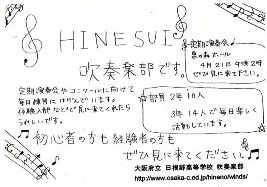 HINESUI
吹奏楽部です。
定期演奏会
泉の森ホール
4月21日 午後2時
ぜひ見に来て下さい。
定期演奏会やコンクールに向けて
毎日練習にはげんでいます。
体験入部などなど見に来てくれたら
うれしいです。
☆部員 2年 10人
3年 14人で毎日楽しく
活動しています。
初心者の方も経験者の方も
ぜひ見に来てください。
大阪府立 日根野高等学校 吹奏楽部
http://www.osaka-c.ed.jp/hineno/winds/